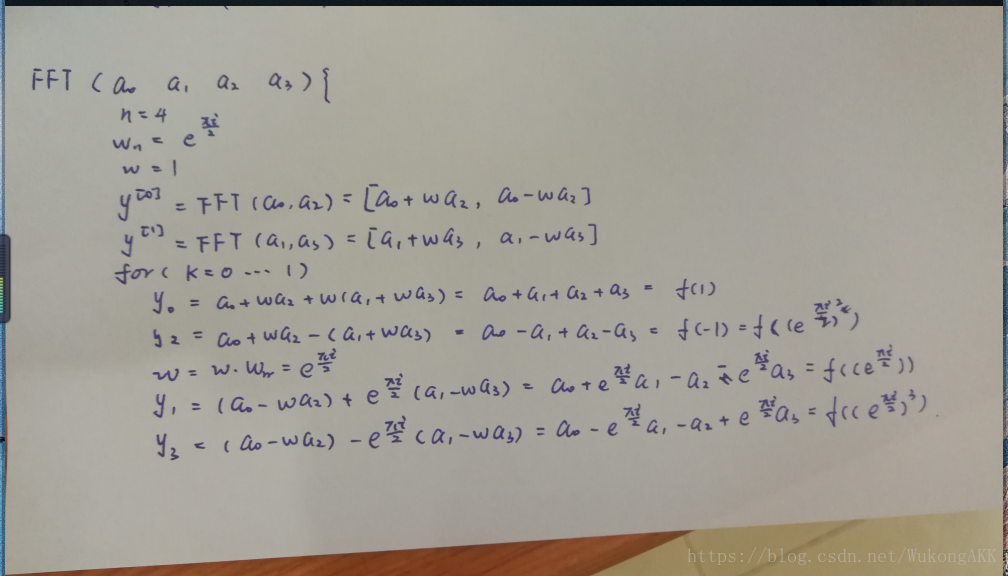 FFT (a₀ a₁ a₂ a₃) {
n = 4
wₙ = e^{πi/2}
w = 1
y^{[0]} = FFT (a₀, a₂) = [a₀ + wa₂, a₀ - wa₂]
y^{[1]} = FFT (a₁, a₃) = [a₁ + wa₃, a₁ - wa₃]
for ( k = 0 ... 1)
y₀ = a₀ + wa₂ + w(a₁ + wa₃) = a₀ + a₁ + a₂ + a₃ = f(1)
y₂ = a₀ + wa₂ - (a₁ + wa₃) = a₀ - a₁ + a₂ - a₃ = f(-1) = f((e^{πi/2})²)
w = w · wₙ = e^{πi/2}
y₁ = (a₀ - wa₂) + e^{πi/2} (a₁ - wa₃) = a₀ + e^{πi/2} a₁ - a₂ - e^{πi/2} a₃ = f((e^{πi/2}))
y₃ = (a₀ - wa₂) - e^{πi/2} (a₁ - wa₃) = a₀ - e^{πi/2} a₁ - a₂ + e^{πi/2} a₃ = f((e^{πi/2})³).
https://blog.csdn.net/WukongAKK